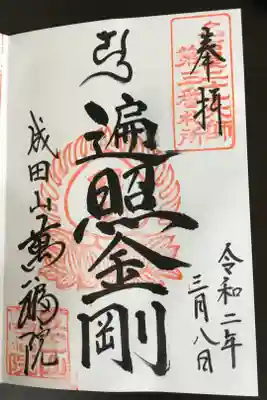 奉拝
第二番札所
令和二年
三月八日
遍照金剛
成田山萬福院